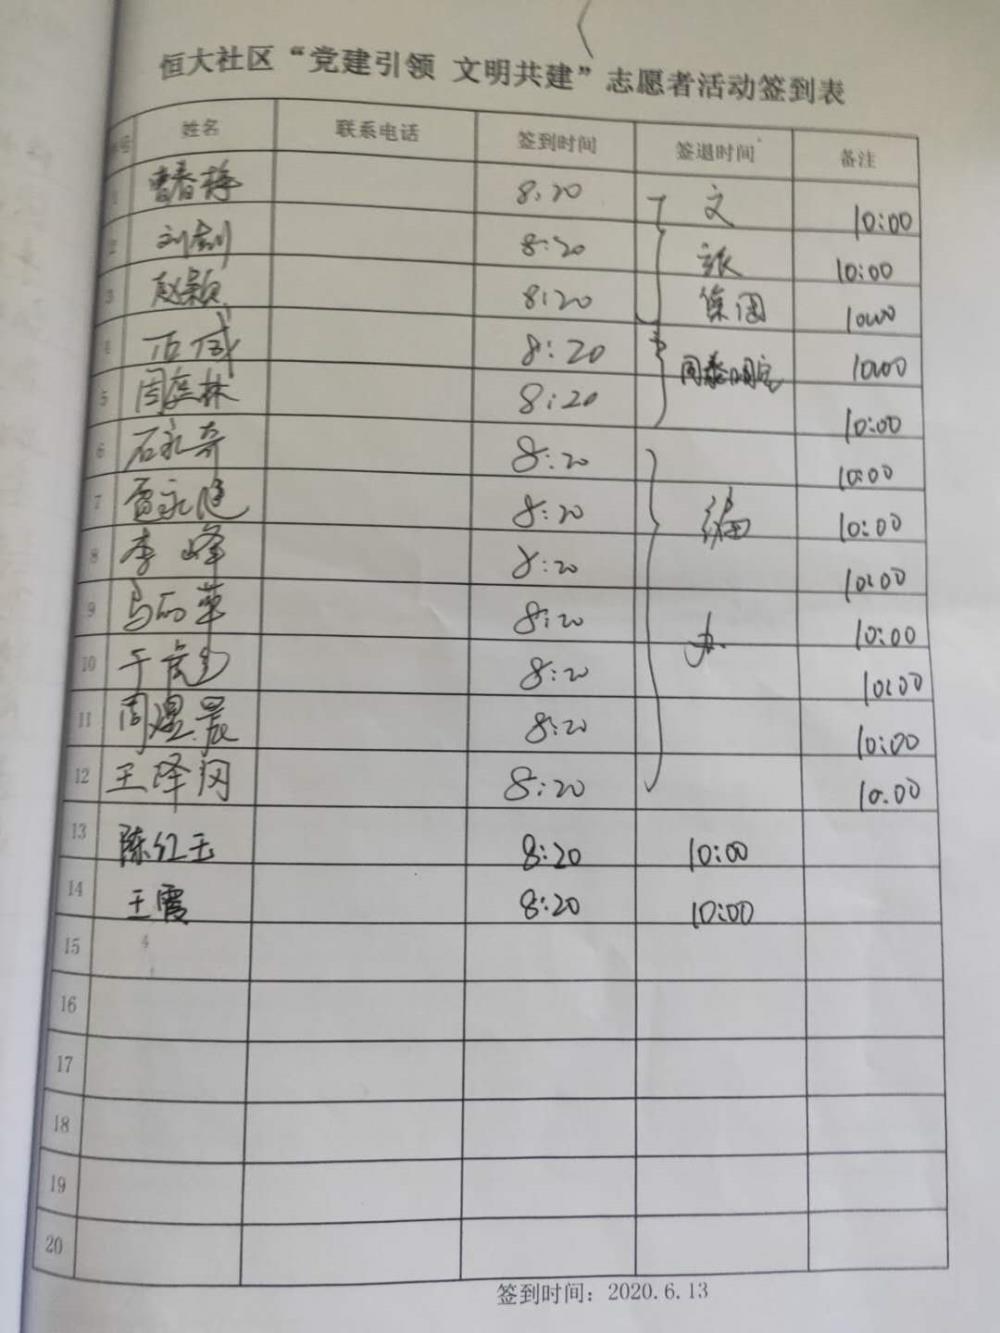 恒大社区“党建引领 文明共建”志愿者活动签到表
号 姓名 联系电话 签到时间 签退时间 备注
1 曹春梅 8:20 文 10:00
2 刘 8:20 旅 10:00
3 赵颖 8:20 集团 10:00
4 8:20 10:00
5 周庭林 8:20 10:00
6 石永奇 8:20 10:00
7 雷永健 8:20 编 10:00
8 李峰 8:20 10:00
9 马丽华 8:20 办 10:00
10 于 8:20 10:00
11 周煜晨 8:20 10:00
12 王泽 8:20 10:00
13 陈红玉 8:20 10:00
14 王霞 8:20 10:00
15
16
17
18
19
20
签到时间：2020.6.13